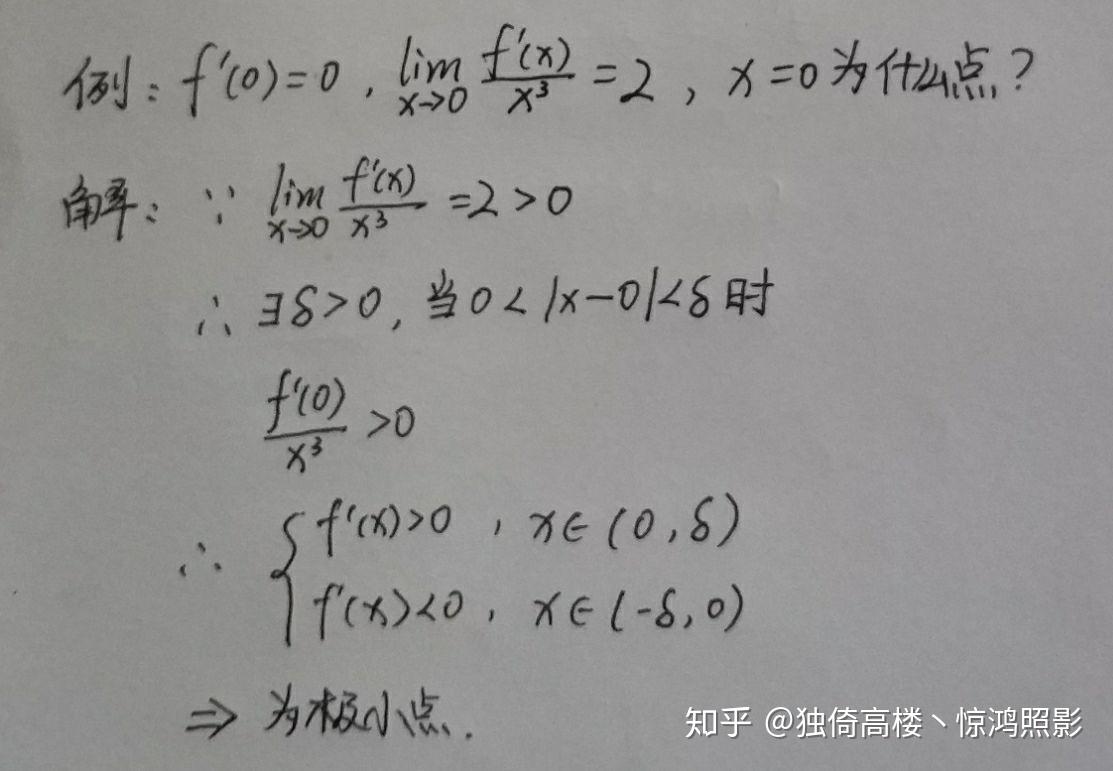 例：f'(0)=0，lim_{x→0} f'(x)/x³ =2，x=0为什么点？
解：∵ lim_{x→0} f'(x)/x³ =2>0
∴ ∃δ>0，当0<|x-0|<δ时
f'(0)/x³ >0
∴ { f'(x)>0，x∈(0,δ)
f'(x)<0，x∈(-δ,0)
⇒ 为极小点.
知乎 @独倚高楼丶惊鸿照影